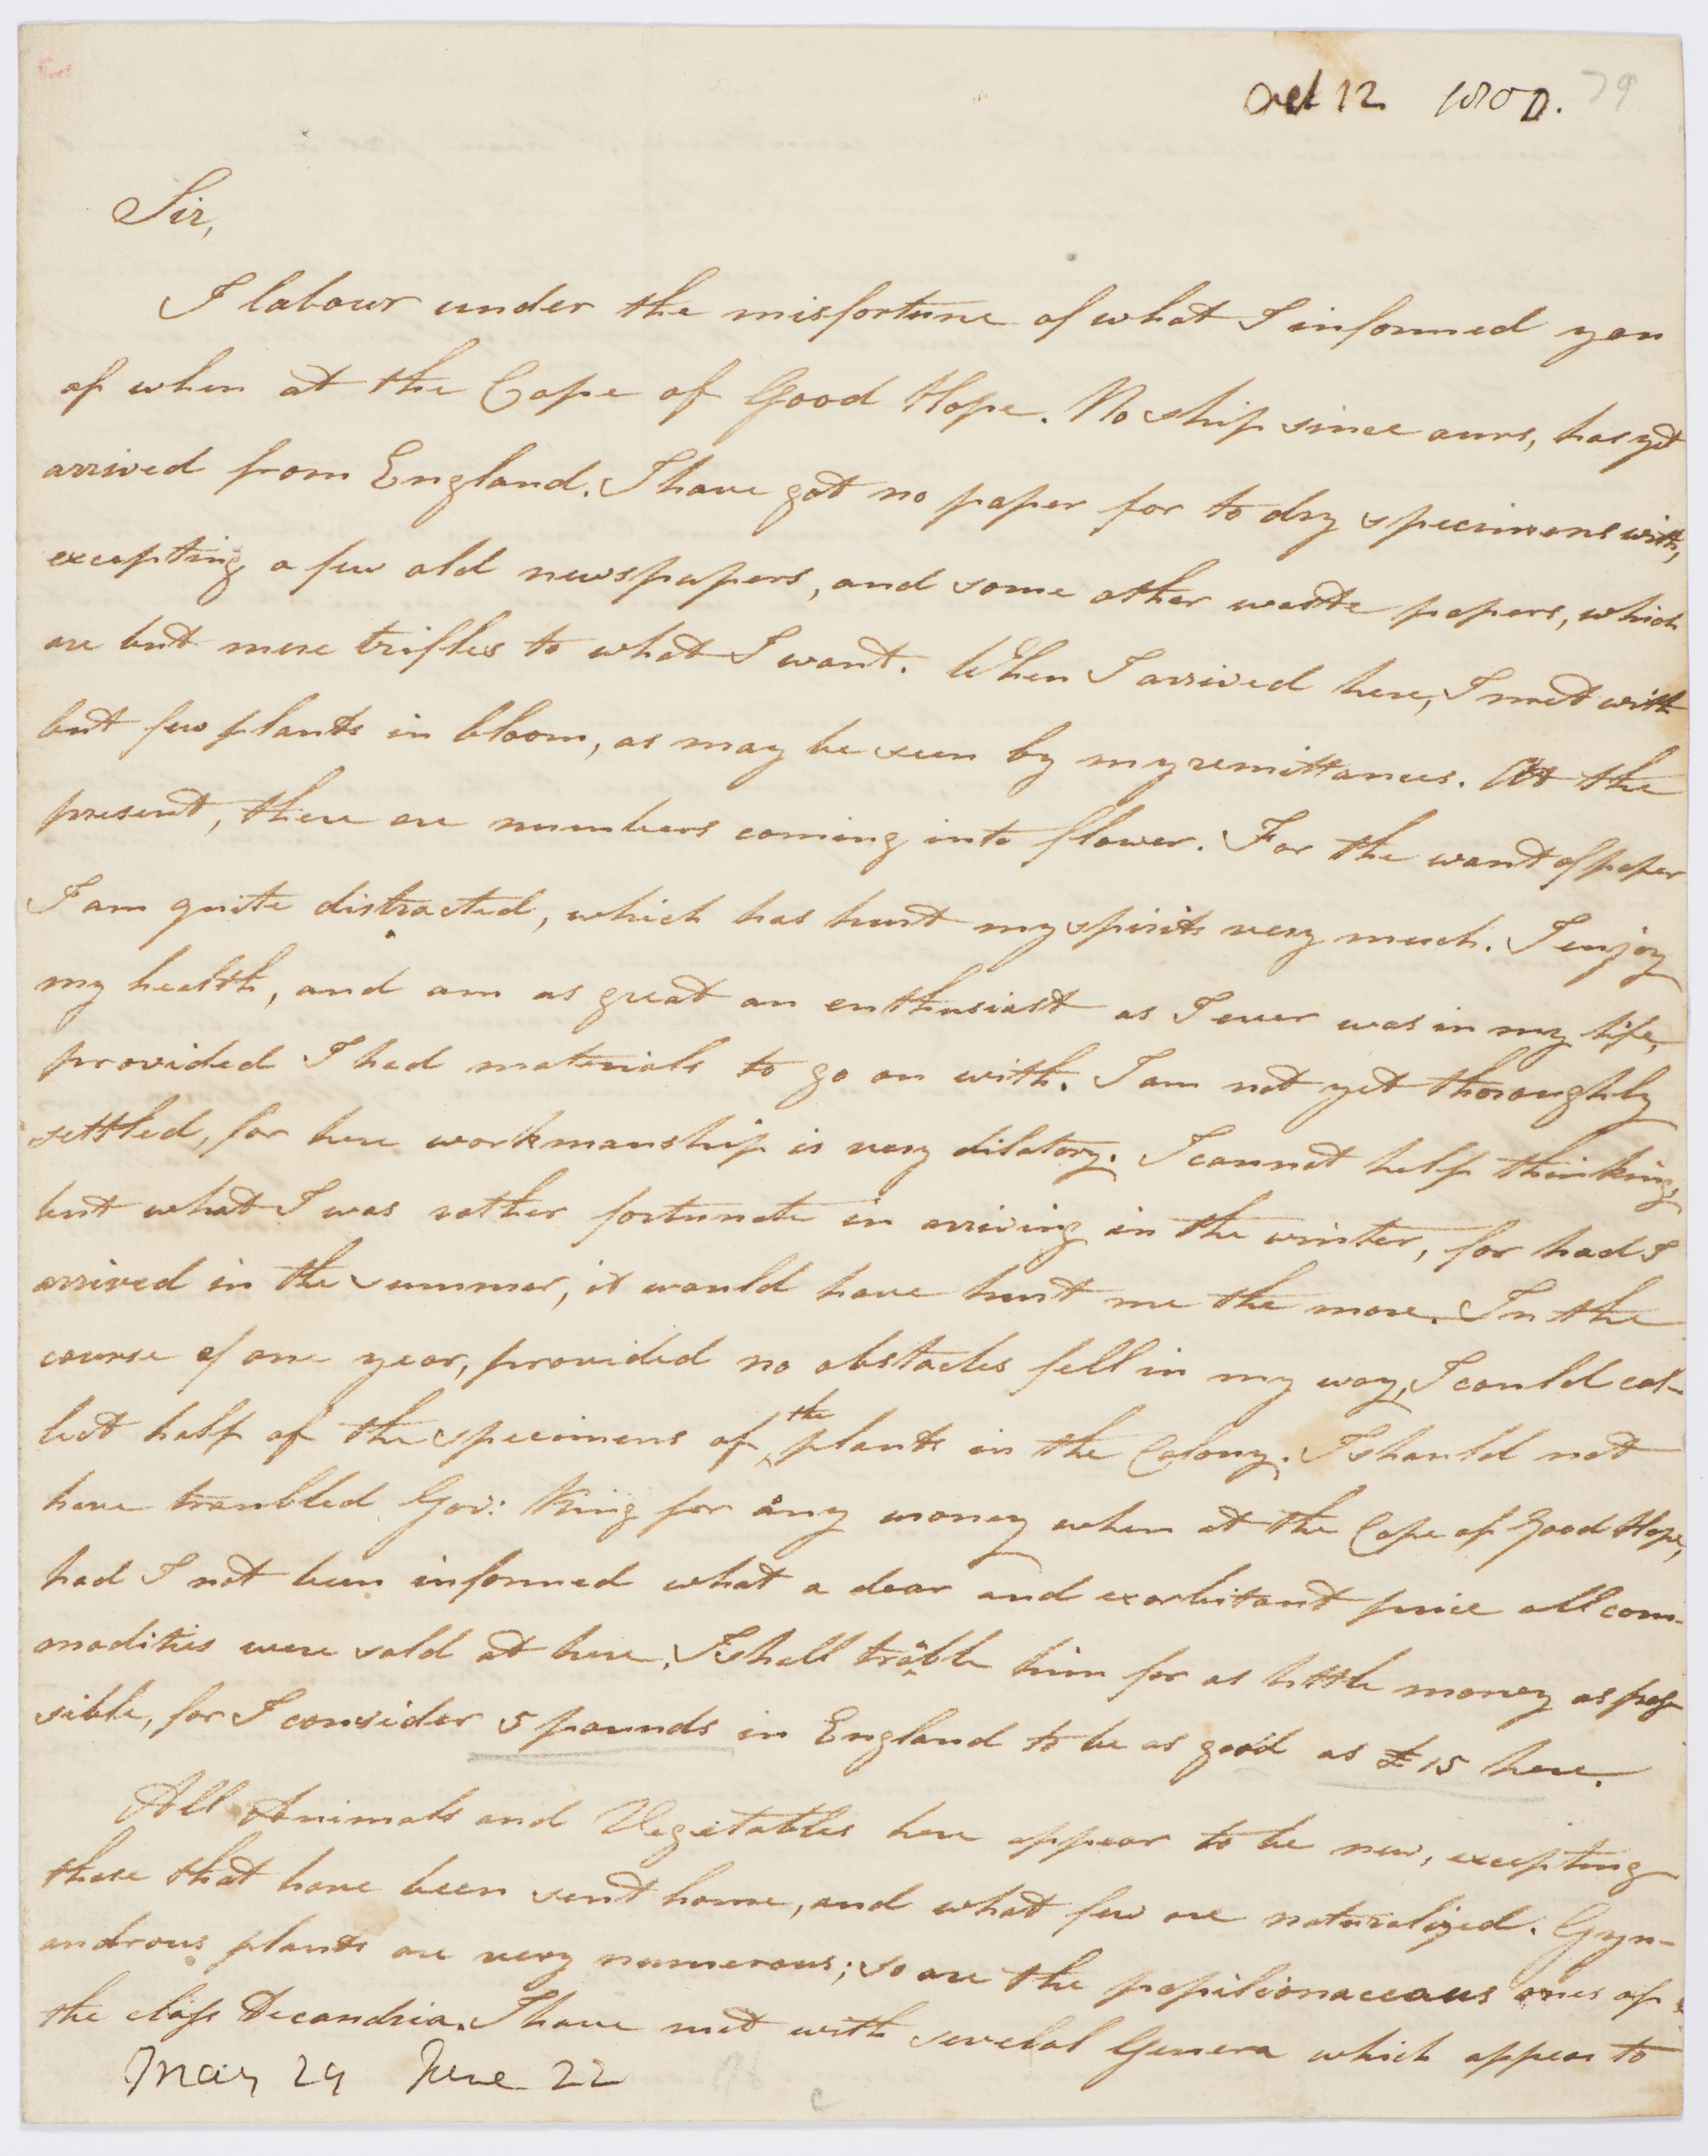 Oct 12 1800. 79
Sir,
I labour under the misfortune of what I informed you
of when at the Cape of Good Hope. No ship since ours, has yet
arrived from England. I have got no paper for to dry specimens with,
excepting a few old newspapers, and some other waste papers, which
are but mere trifles to what I want. When I arrived here, I met with
but few plants in bloom, as may be seen by my remittances. At the
present, there are numbers coming into flower. For the want of paper
I am quite distracted, which has hurt my spirits very much. I enjoy
my health, and am as great an enthusiast as I ever was in my life,
provided I had materials to go on with. I am not yet thoroughly
settled, for here workmanship is very dilatory. I cannot help thinking,
but what I was rather fortunate in arriving in the winter, for had I
arrived in the summer, it would have hurt me the more. In the
course of one year, provided no obstacles fell in my way, I could col-
lect half of the specimens of the plants in the Colony. I should not
have troubled Gov: King for any money when at the Cape of Good Hope,
had I not been informed what a dear and exorbitant price all com-
modities were sold at here. I shall trouble him for as little money as pos-
sible, for I consider 5 pounds in England to be as good as £15 here.
All Animals and Vegitables here appear to be new, excepting
those that have been sent home, and what few are naturalized. Gyn-
androus plants are very numerous; so are the papilionaceous ones of
the class Decandria. I have met with several Genera which appear to
May 29 June 22